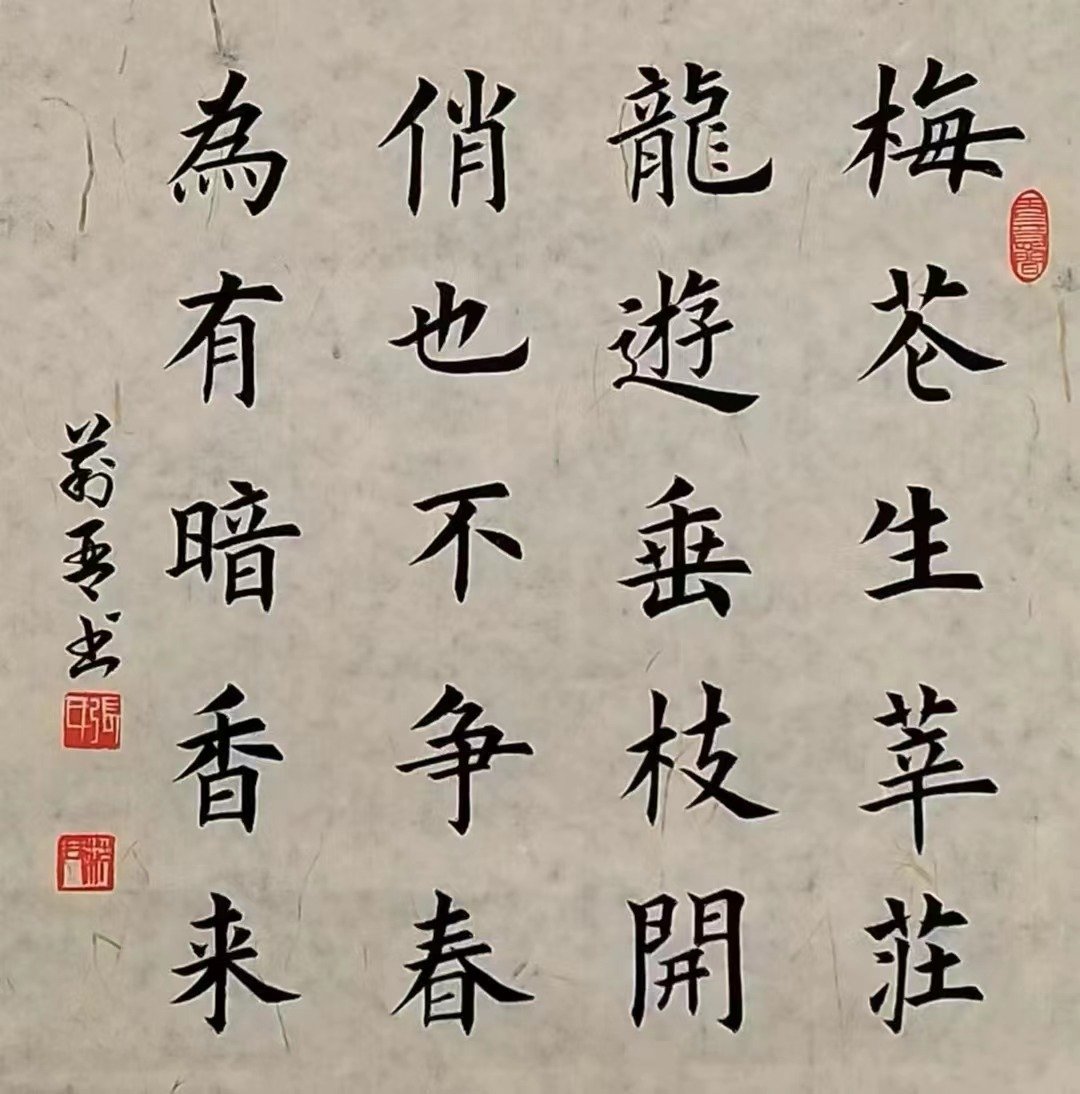 梅花生莘莊
龍遊垂枝開
俏也不争春
為有暗香来
书
張